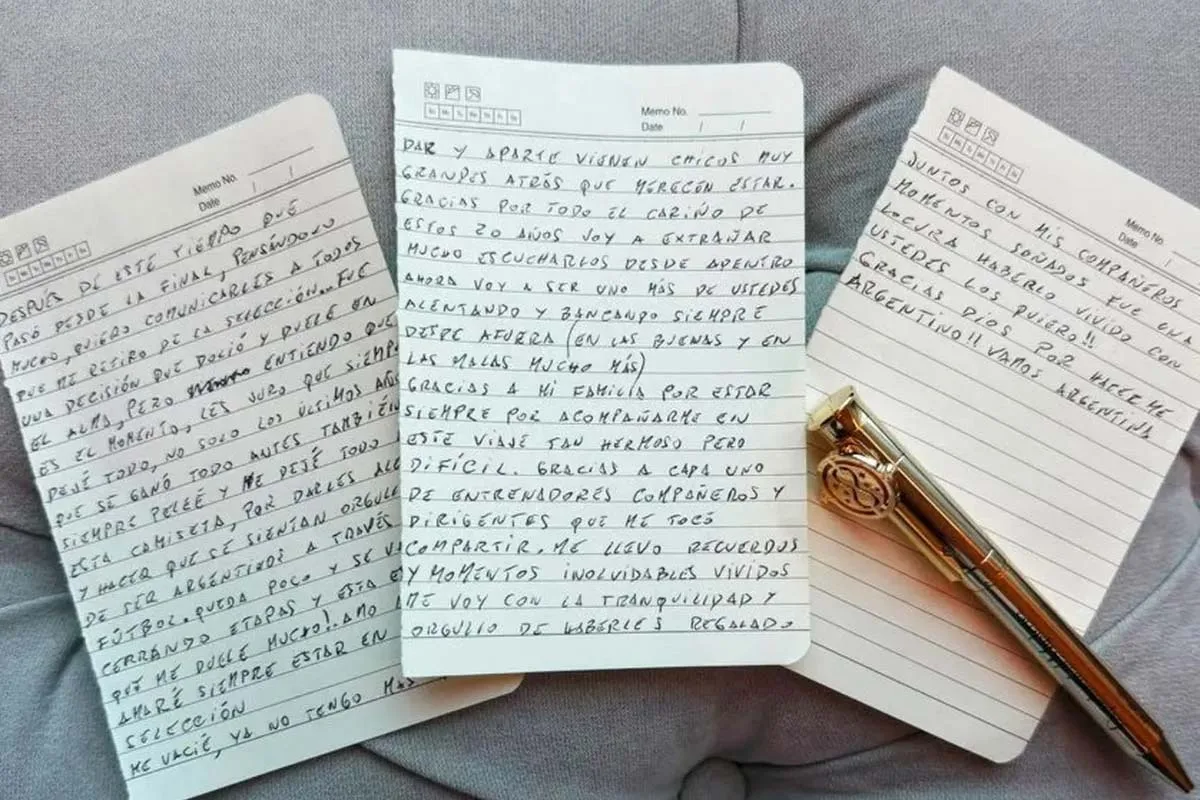 Memo No.
Date / /
DESPUÉS DE ESTE TIEMPO QUE
PASÓ DESDE LA FINAL, PENSÁNDOLO
MUCHO, QUIERO COMUNICARLES A TODOS
QUE ME RETIRO DE LA SELECCIÓN... FUE
UNA DECISIÓN QUE DOLIÓ Y DUELE EN
EL ALMA, PERO ENTIENDO QUE
ES EL MOMENTO, LES JURO QUE SIEMPRE
DEJÉ TODO, NO SOLO LOS ÚLTIMOS AÑOS
QUE SE GANÓ TODO ANTES TAMBIÉN
SIEMPRE PELEÉ Y ME DEJÉ TODO
ESTA CAMISETA, POR DARLES
Y HACER QUE SE SIENTAN
DE SER ARGENTINOS A TRAVÉS
FÚTBOL. QUEDA POCO Y SE
CERRANDO ETAPAS Y ESTA
QUE ME DUELE MUCHO!. AMO
AMARÉ SIEMPRE ESTAR EN
SELECCIÓN
ME VACIÉ, YA NO TENGO MÁS
Memo No.
Date / /
DAR Y APARTE VIENEN CHICOS MUY
GRANDES ATRÁS QUE MERECEN ESTAR.
GRACIAS POR TODO EL CARIÑO DE
ESTOS 20 AÑOS VOY A EXTRAÑAR
MUCHO ESCUCHARLOS DESDE ADENTRO
AHORA VOY A SER UNO MÁS DE USTEDES
ALENTANDO Y BANCANDO SIEMPRE
DESDE AFUERA (EN LAS BUENAS Y EN
LAS MALAS MUCHO MÁS)
GRACIAS A MI FAMILIA POR ESTAR
SIEMPRE POR ACOMPAÑARME EN
ESTE VIAJE TAN HERMOSO PERO
DIFÍCIL. GRACIAS A CADA UNO
DE ENTRENADORES COMPAÑEROS Y
DIRIGENTES QUE ME TOCÓ
COMPARTIR. ME LLEVO RECUERDOS
Y MOMENTOS INOLVIDABLES VIVIDOS
ME VOY CON LA TRANQUILIDAD Y
ORGULLO DE HABERLES REGALADO
Memo No.
Date /
JUNTOS CON MIS COMPAÑEROS
MOMENTOS SOÑADOS FUE UNA
LOCURA HABERLO VIVIDO CON
USTEDES LOS QUIERO!!
GRACIAS DIOS POR HACERME
ARGENTINO!! VAMOS ARGENTINA